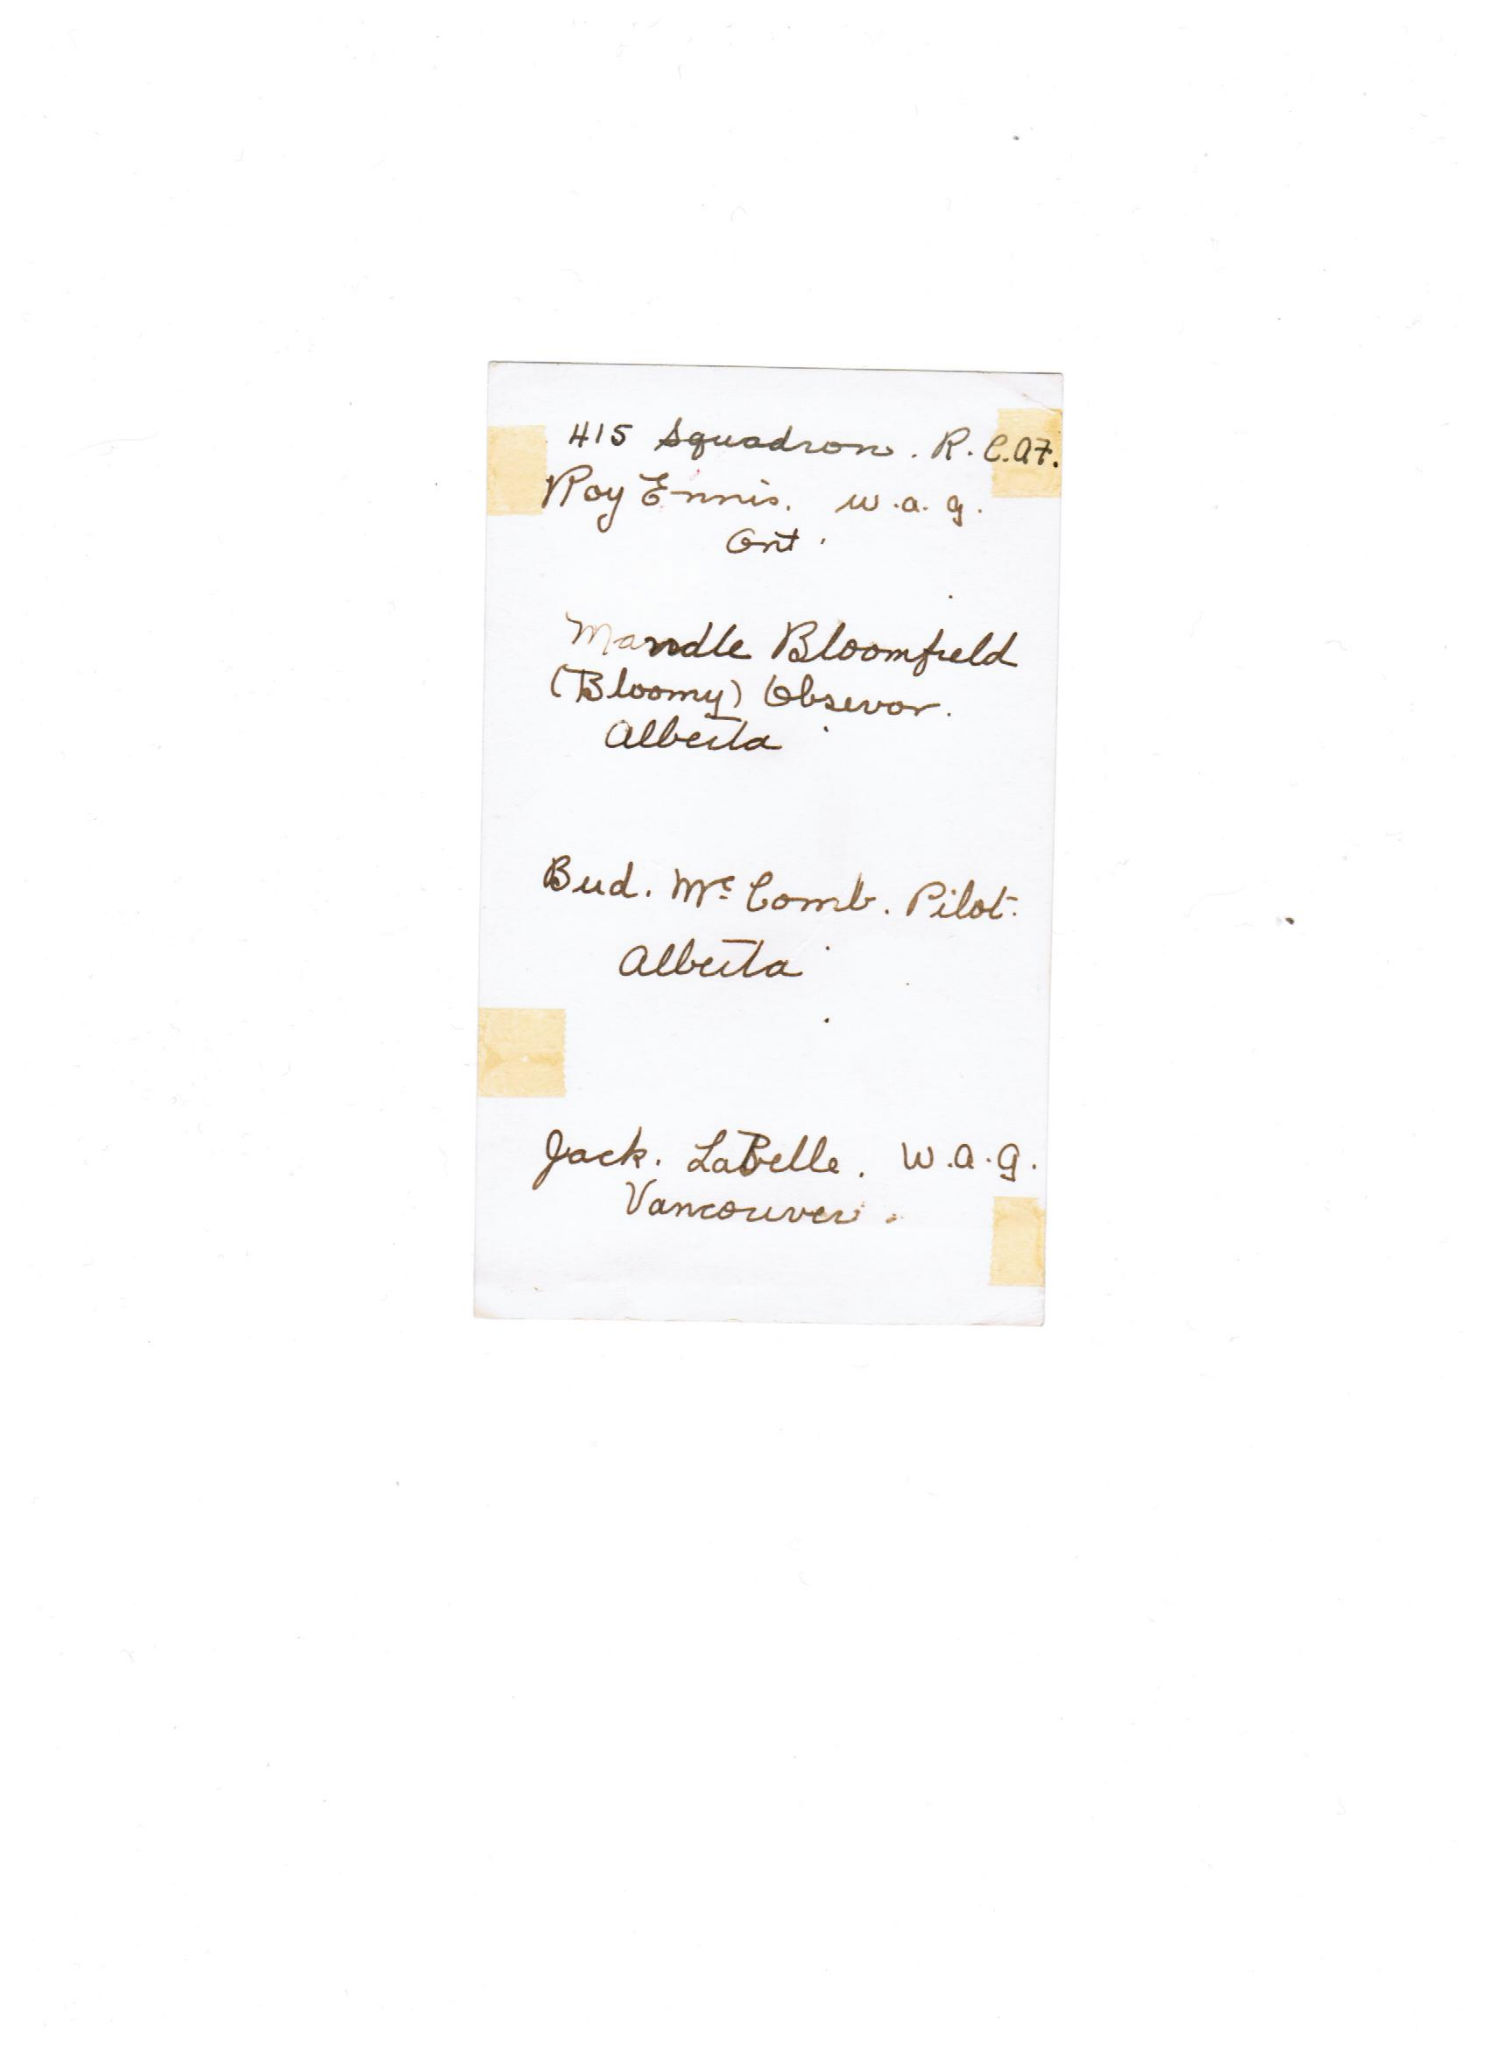 415 Squadron. R.C.A.F.
Roy Ennis. W.A.G.
Ont.
Mandle Bloomfield
(Bloomy) Obsevor.
Alberta
Bud. Mc Comb. Pilot.
Alberta
Jack. LaBelle. W.A.G.
Vancouver.